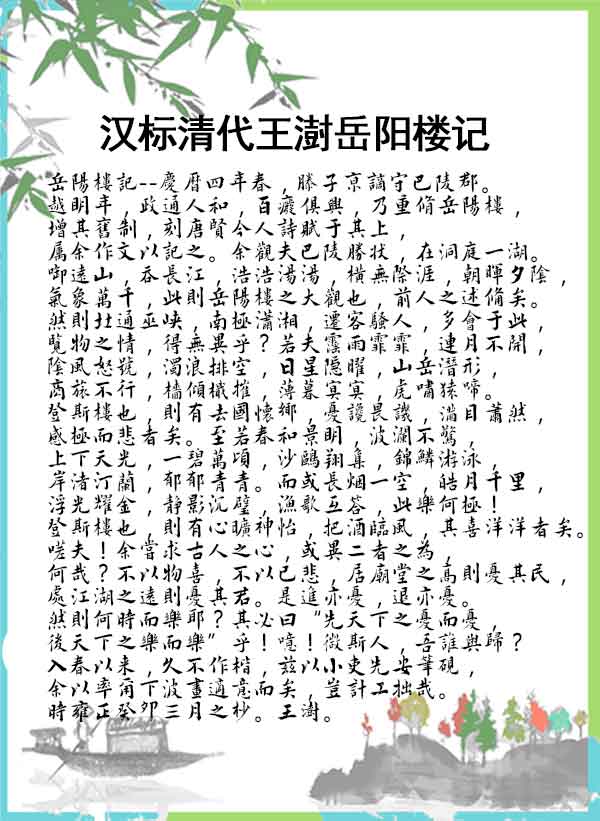 汉标清代王澍岳阳楼记
岳陽樓記--慶曆四年春，滕子京謫守巴陵郡。
越明年，政通人和，百癈俱興，乃重脩岳陽樓，
增其舊制，刻唐賢今人詩賦于其上，
属余作文以記之。余觀夫巴陵勝状，在洞庭一湖。
啣遠山，吞長江，浩浩湯湯，横無際涯，朝暉夕陰，
氣象萬千，此則岳陽樓之大觀也，前人之述備矣。
然則北通巫峡，南極瀟湘，遷客騷人，多會于此，
覽物之情，得無異乎？若夫霪雨霏霏，連月不開，
陰風怒號，濁浪排空，日星隱曜，山岳潛形，
商旅不行，檣傾檝摧，薄暮冥冥，虎嘯猿啼。
登斯樓也，則有去國懷鄉，憂讒畏譏，滿目蕭然，
感極而悲者矣。至若春和景明，波瀾不驚，
上下天光，一碧萬頃，沙鷗翔集，錦鱗游泳，
岸渚汀蘭，郁郁青青。而或長烟一空，皓月千里，
浮光耀金，静影沉璧，漁歌互答，此樂何極！
登斯樓也，則有心曠神怡，把酒臨風，其喜洋洋者矣。
嗟夫！余嘗求古人之心，或異二者之為，
何哉？不以物喜，不以己悲，居廟堂之高則憂其民，
處江湖之遠則憂其君。是進亦憂，退亦憂。
然則何時而樂耶？其必曰“先天下之憂而憂，
後天下之樂而樂”乎！噫！微斯人，吾誰與歸？
入春以来，久不作楷，兹以小吏先安筆硯，
余以率甫下波畫適意而矣，豈計工拙哉。
時雍正癸卯三月之杪。王澍。